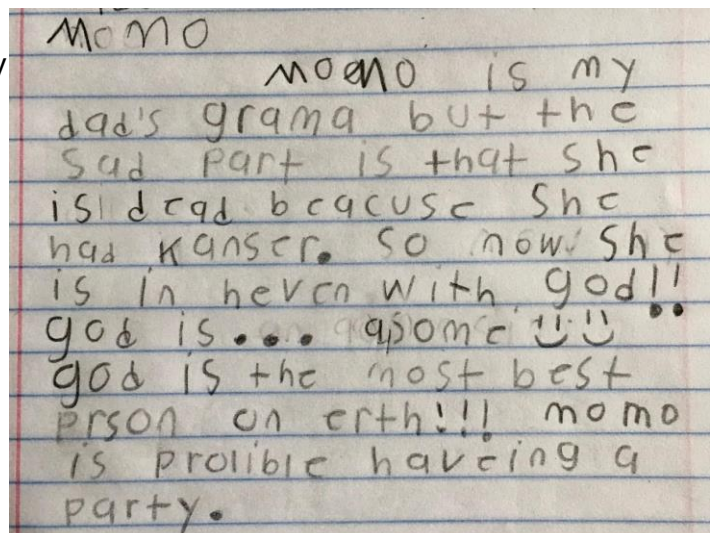 Momo
moeno is my
dad's grama but the
sad part is that she
is dead beacuse she
had kanser. so now she
is in heven with god!!
god is... apome
god is the most best
prson on erth!!! momo
is prolible haveing a
party.